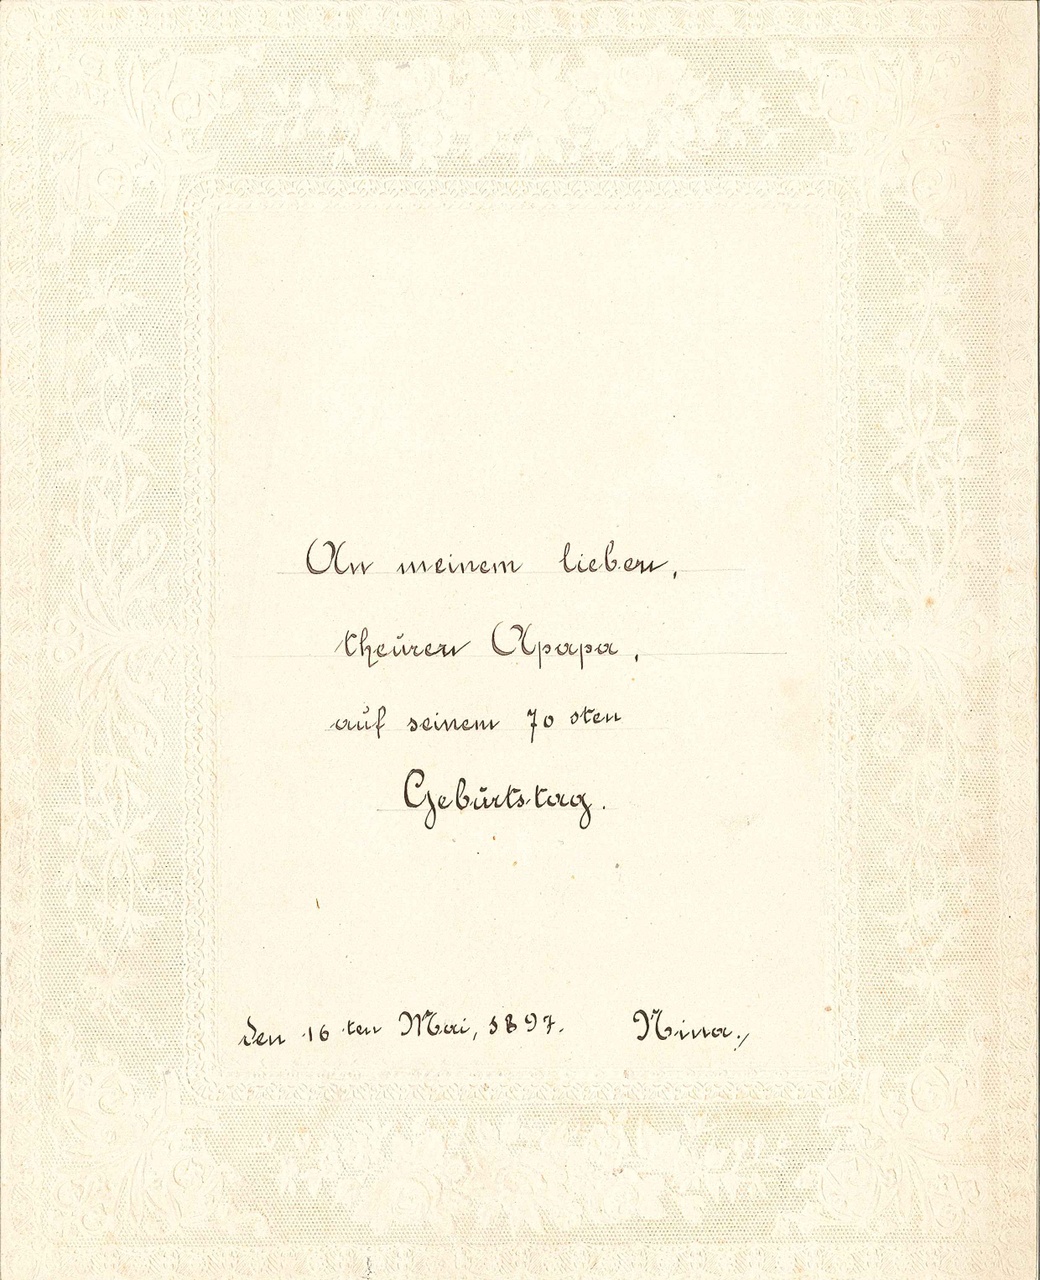 An meinem lieben,
theuren Apapa,
auf seinem 70 sten
Geburtstag.
den 16 ten Mai, 1897. Nina.